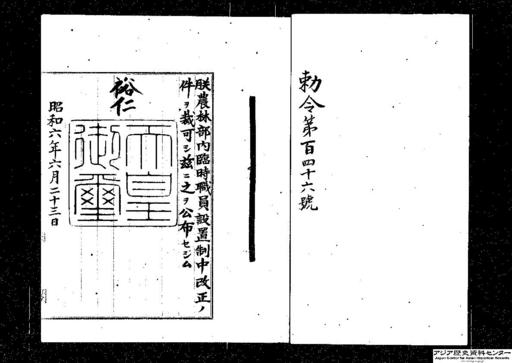 勅令第百四十六號
朕農林部内臨時職員設置制中改正ノ
件ヲ裁可シ茲ニ之ヲ公布セシム
裕仁
天皇御璽
昭和六年六月二十三日
アジア歴史資料センター
Japan Center for Asian Historical Records